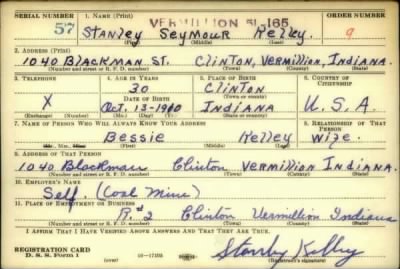 SERIAL NUMBER 1. NAME (Print) ORDER NUMBER
VERMILLION 51-165
57 Stanley Seymour Kelley. 9
(First) (Middle) (Last)
2. ADDRESS (Print)
1040 BLACKMAN ST. CLINTON, VERMILLION, INDIANA.
(Number and street or R. F. D. number) (Town) (County) (State)
3. TELEPHONE 4. AGE IN YEARS 5. PLACE OF BIRTH 6. COUNTRY OF CITIZENSHIP
30 Clinton
X DATE OF BIRTH (Town or county)
Oct. 13-1910 INDIANA U.S.A.
(Exchange) (Number) (Mo.) (Day) (Yr.) (State or country)
7. NAME OF PERSON WHO WILL ALWAYS KNOW YOUR ADDRESS 8. RELATIONSHIP OF THAT PERSON
Bessie Kelley Wife.
(Mr., Mrs., Miss) (First) (Middle) (Last)
9. ADDRESS OF THAT PERSON
1040 Blackman Clinton Vermillion Indiana.
(Number and street or R. F. D. number) (Town) (County) (State)
10. EMPLOYER'S NAME
Self. (Coal Mine)
11. PLACE OF EMPLOYMENT OR BUSINESS
R.#2 Clinton Vermillion Indiana
(Number and street or R. F. D. number) (Town) (County) (State)
I AFFIRM THAT I HAVE VERIFIED ABOVE ANSWERS AND THAT THEY ARE TRUE.
REGISTRATION CARD
D. S. S. Form 1 (over) 16-17105 Stanley Kelley
(Registrant's signature)